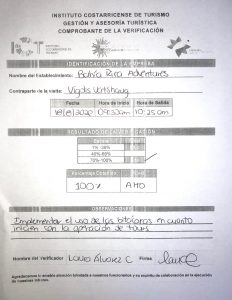 INSTITUTO COSTARRICENSE DE TURISMO
GESTIÓN Y ASESORÍA TURÍSTICA
COMPROBANTE DE LA VERIFICACIÓN
IDENTIFICACIÓN DE LA EMPRESA
Nombre del Establecimiento: Bahía Rica Adventures
Contraparte de la visita:
Fecha Hora de Inicio Hora de Salida
10:25 am
RESULTADO DE LA VERIFICACIÓN
1%-39%
40%-69%
70%-100%
Porcentaje Obtenido
100%
OBSERVACIONES
Implementar el uso de los en cuanto
inicien con la operación de tours
Nombre del Verificador Laura Álvarez C Firma
Agradecemos la amable atención brindada a nuestros funcionarios y su espíritu de colaboración en la ejecución
de nuestras labores.